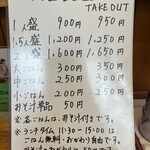 TAKE OUT
1人盛 900円 950円
1.5人盛 1,200円 1,250円
2人盛 1,600円 1,650円
大ごはん 300円 350円
中ごはん 250円 300円
小ごはん 200円 250円
お汁単品 50円
※ 各ごはんは、お汁付きです。
※ ランチタイム 11:30-15:00は
ごはん無料・おかわり自由です。